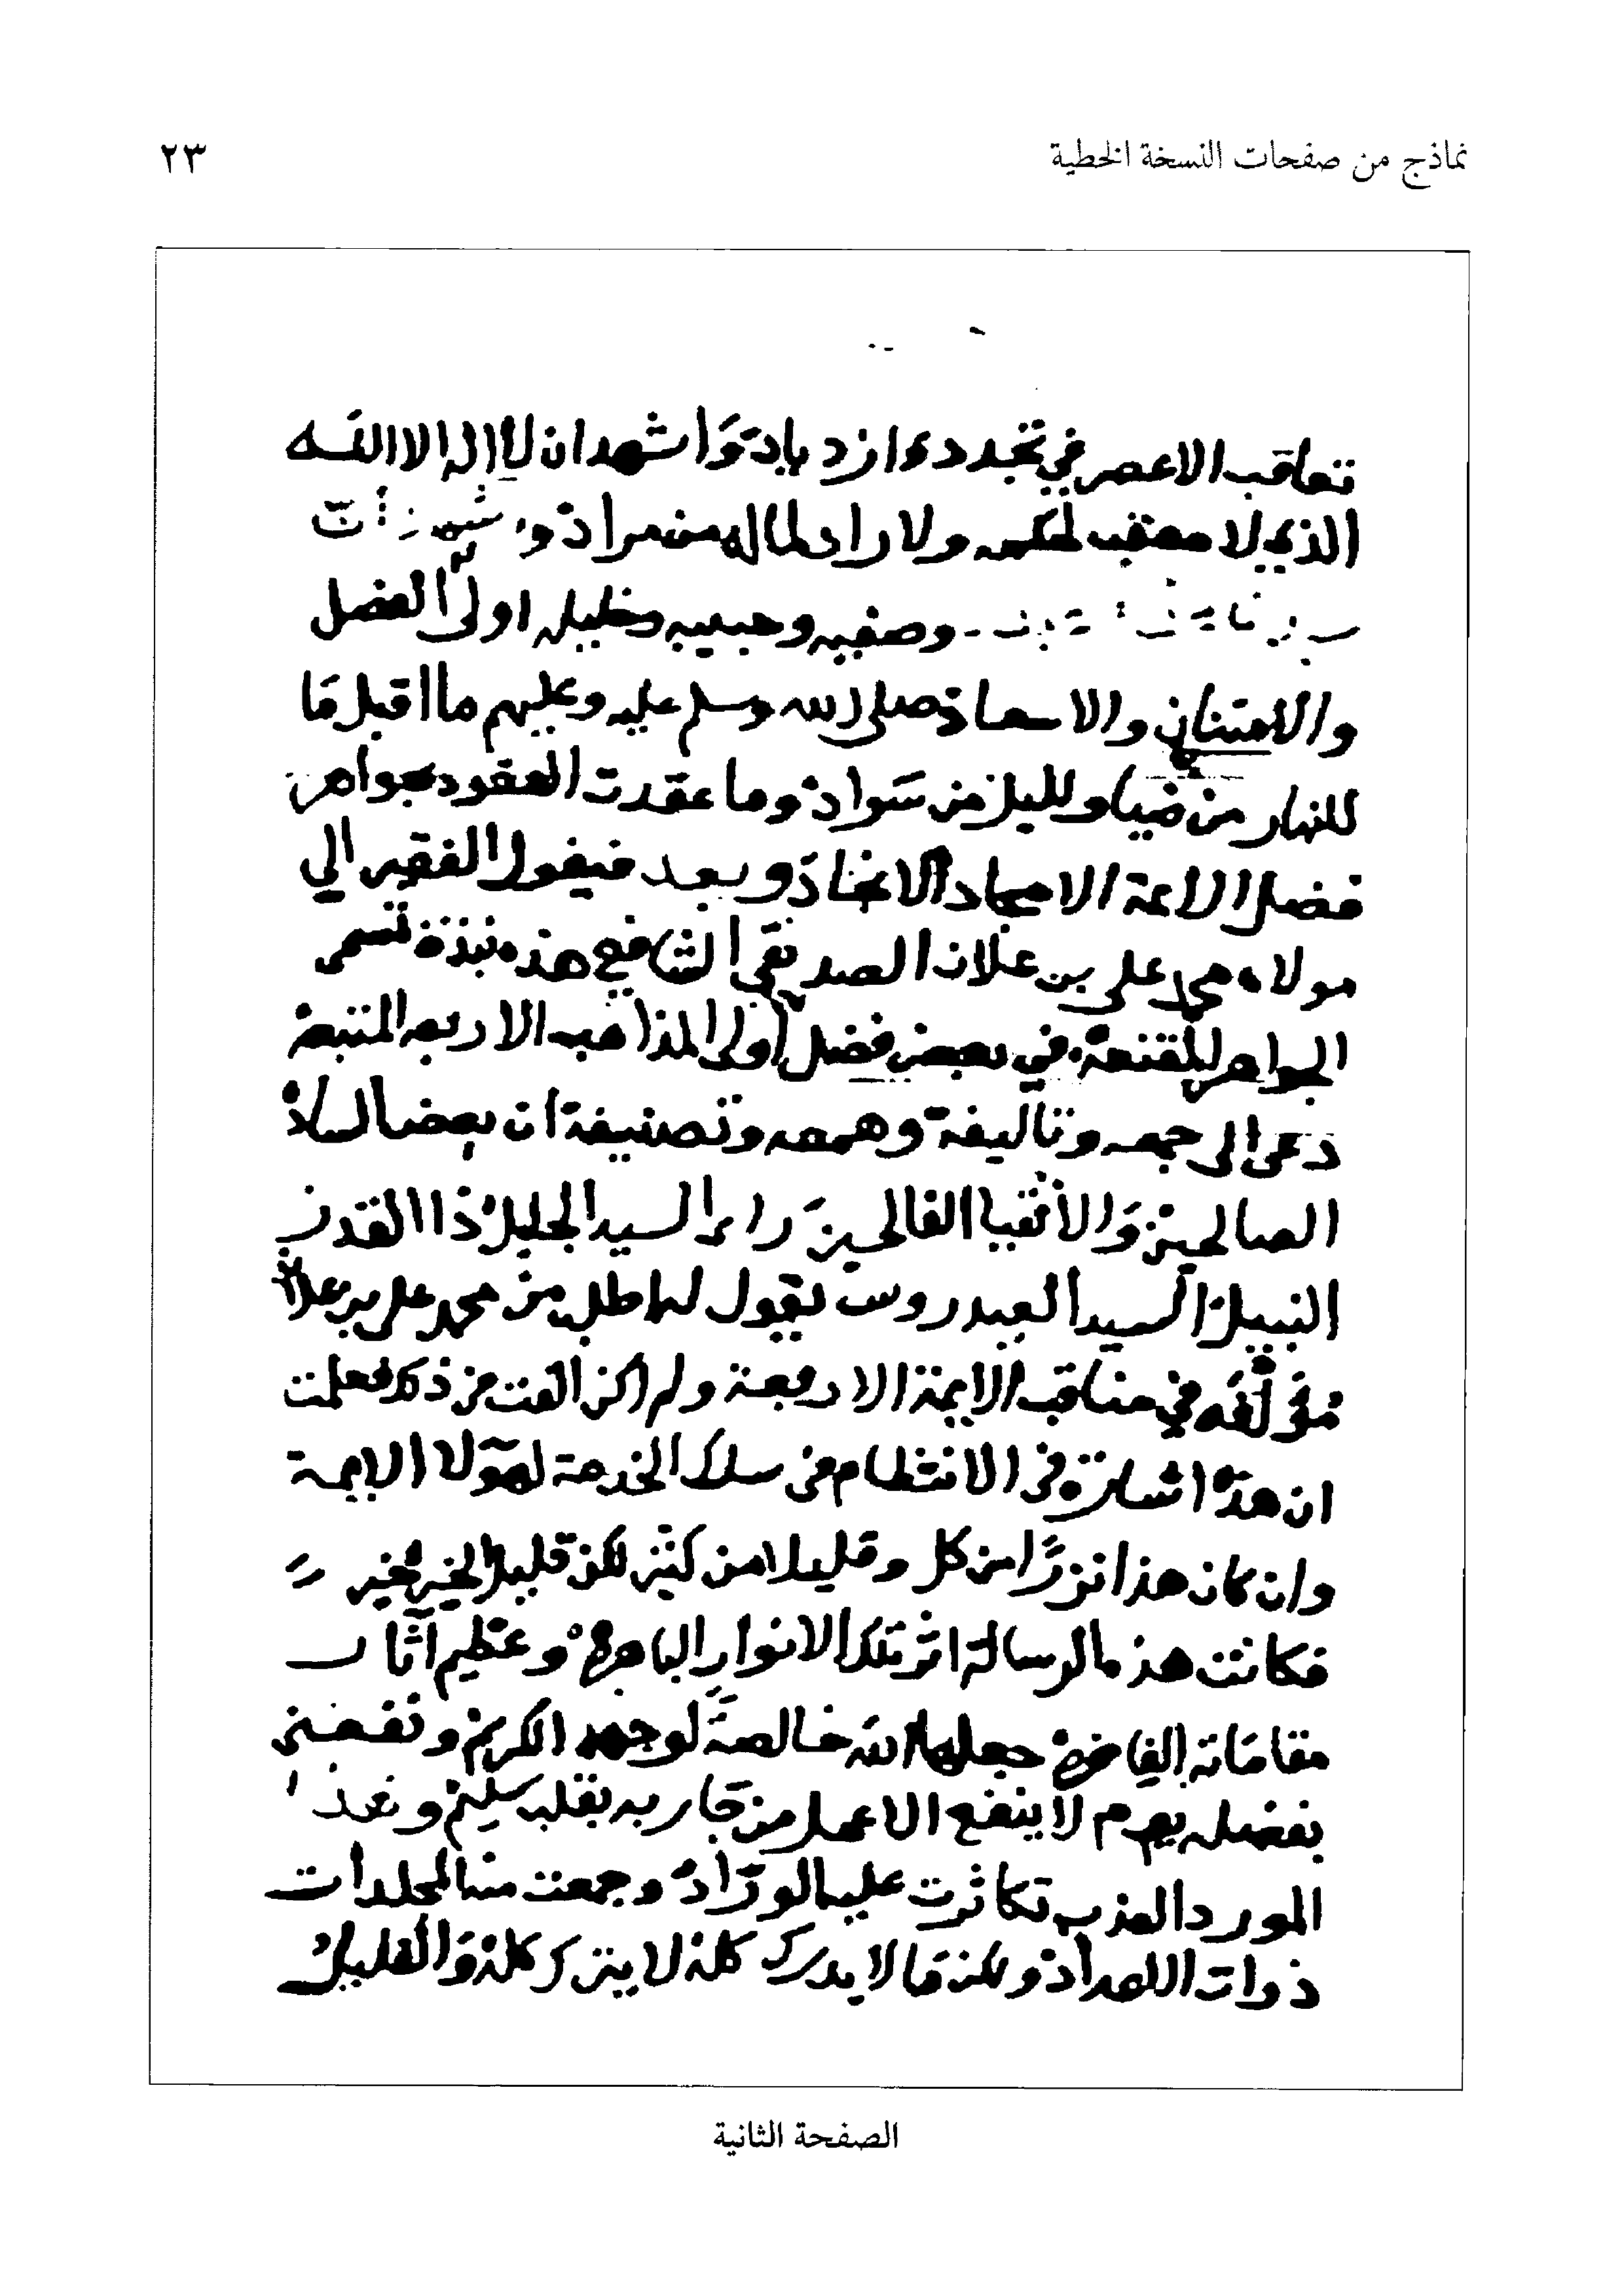 نماذج من صفحات النسخة الخطية
٢٣
تعاقب الاعصر في تجدد وازدياد وَاشهد ان لا اله الا الله
الذي لا معقب لحكمه ولا راد لماله من مراد و
وصفيه وحبيبه وخليله اولى الفضل
والامتنان والاسعاد صلى الله وسلم عليه وعليهم ما اقبل مَا
للنهار من ضيا ولليل من سَواد وما عقدت العقود بجواهر
فضل الائمة الامجاد الانجاد وبعد فيقول الفقير الي
مولاه محمد علي بن علان الصديقي الشافعي هذه نبذة تسمى
الجواهر المقنعة في بعض فضل اولى المذاهب الاربعه المتبعة
دعى الى جمعه وتاليفة وهمعه وتصنيفة ان بعض السادة
الصالحين وَالأتقيا الفالحين راء السيد الجليل ذا القدر
النبيل السيد العيدروس يقول له اطلب من محمد علي بن علان
مؤلفه في مناقب الايمة الاربعة ولم اكن الفت من ذكر فعلمت
ان هذه اشارة في الانتظام في سلك الخدمة لهؤلا الايمة
وان كان هذا نزرًا من كل وقليلا من كثير لكن قليل الخير خير
فكانت هذه الرسالة اثر تلك الانوار الباهرة وعظيم آثار
مقامَاته الفاخرة جعلها الله خالصةً لوجهه الكريم ونفعني
بفضله يوم لا ينفع الا عمل من تجار به بقلب سليم وهذا
المورد العذب تكاثرت عليه الورّاد وجمعت منه المجلدات
ذوات الاعداد ولكن مَا لا يدرك كله لا يترك كله وَالقليل
الصفحة الثانية